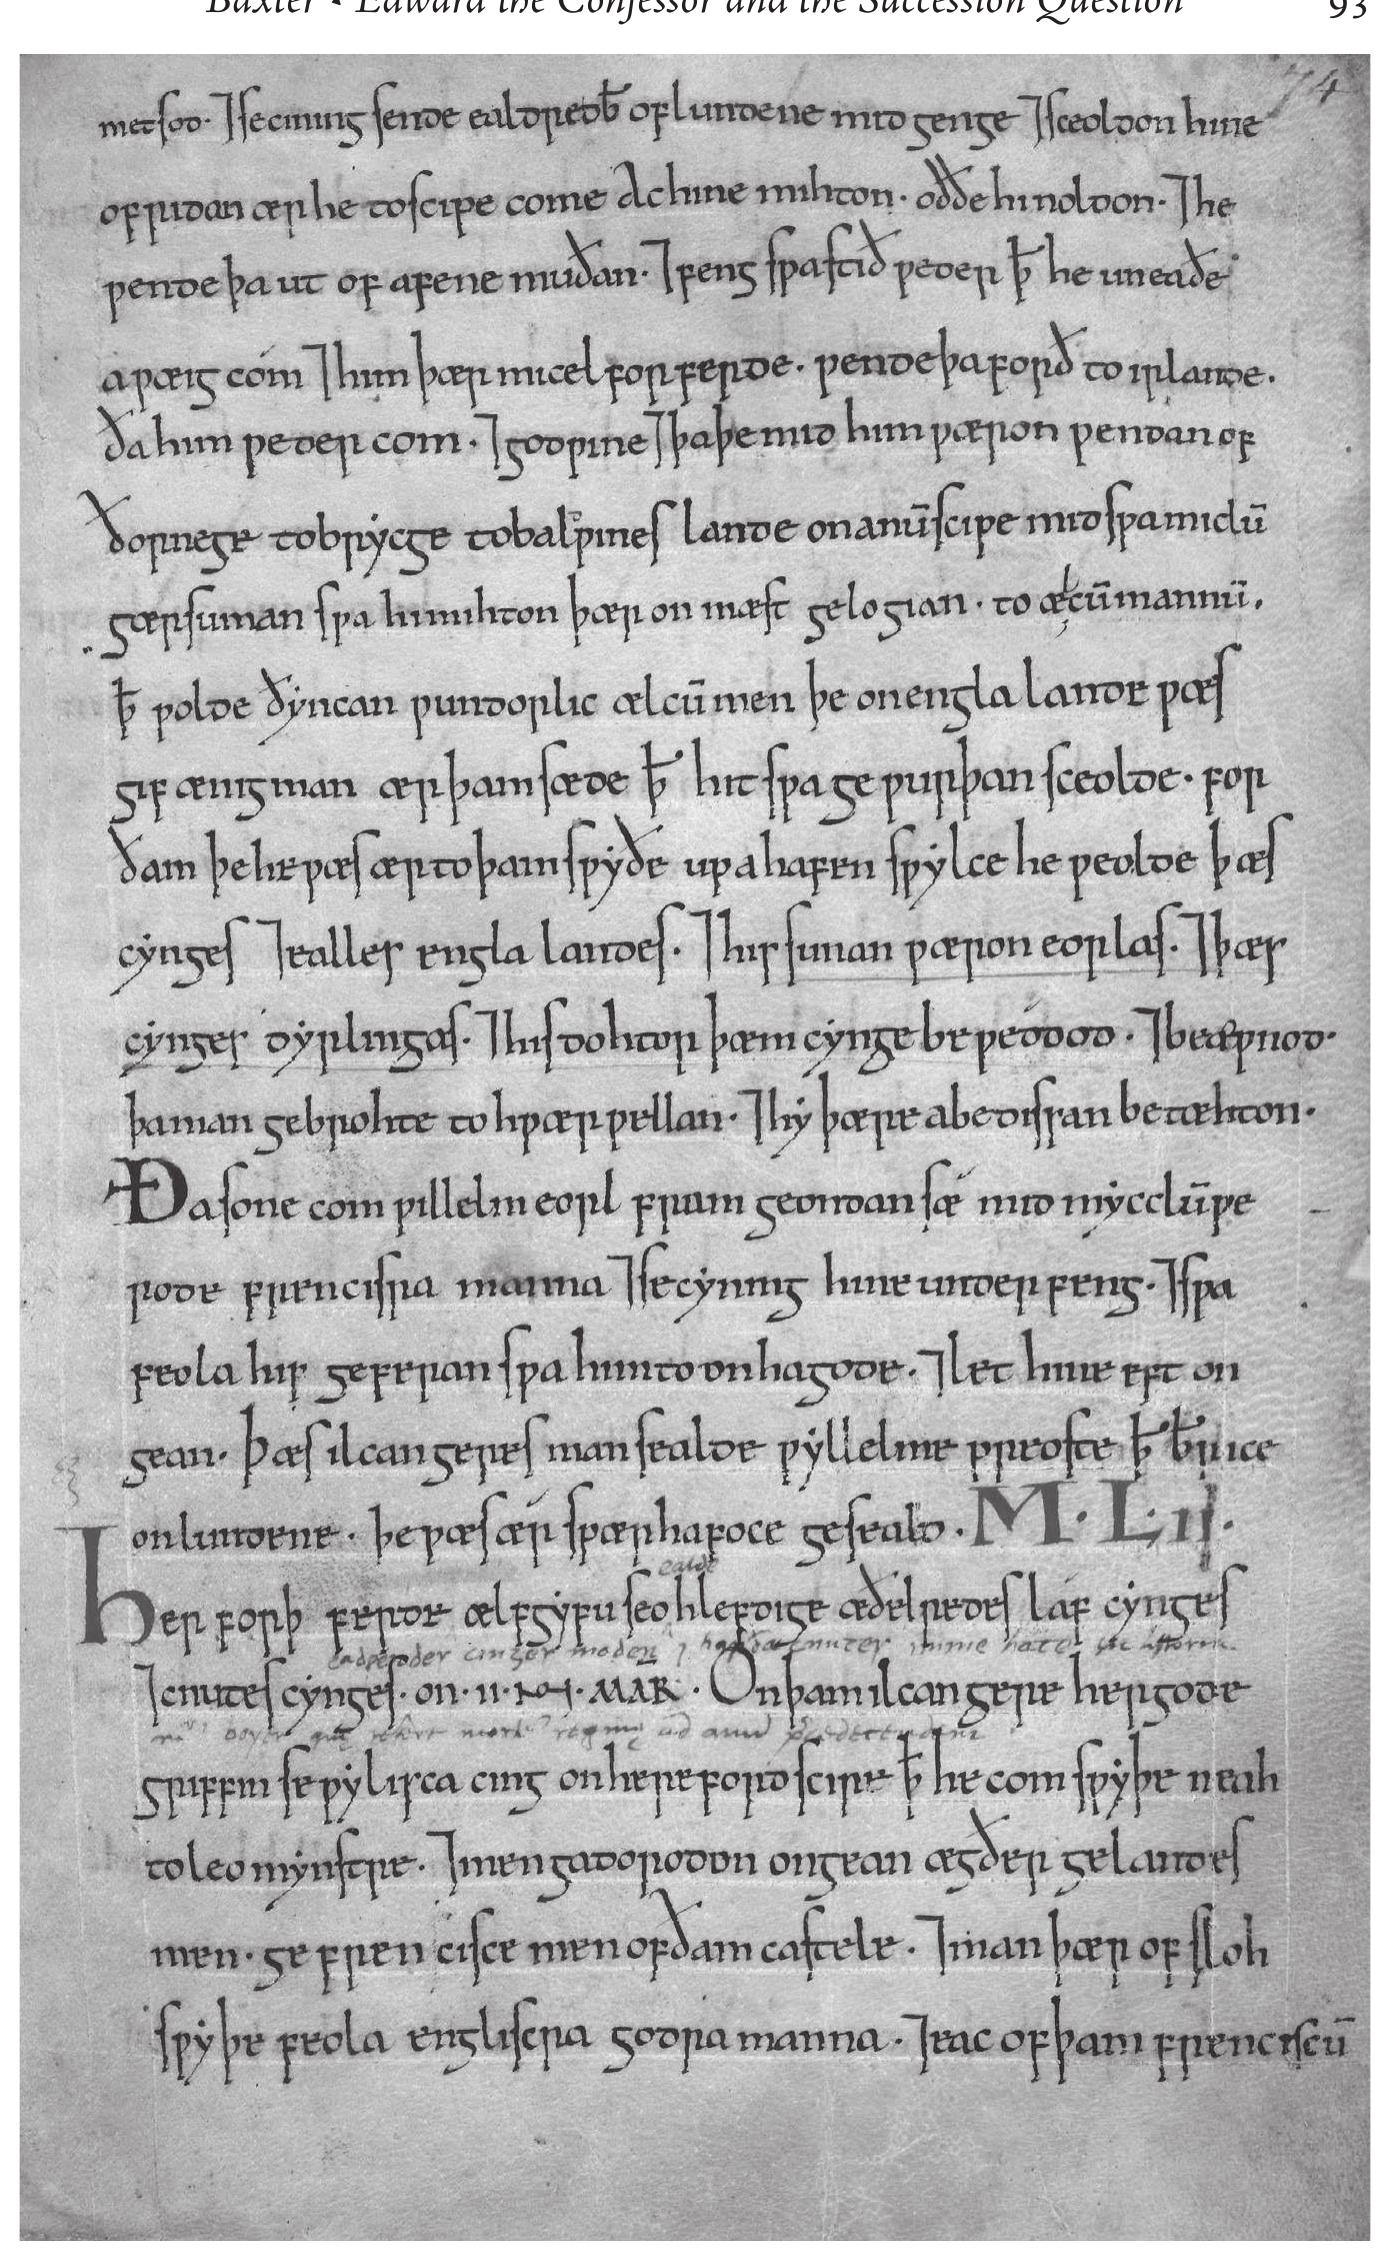 Baxter · Edward the Confessor and the Succession Question 93
74
metsod· ⁊ se cining sende ealdred b̄ of lundene mid genge ⁊ sceoldon hine
ofridan ær he to scipe come Ac hi ne mihton· oððe hi noldon· ⁊ he
ƿende þa ut of afene muðan· ⁊ feng sƿa stið ƿeder ꝥ he uneaðe
aƿæig cóm ⁊ him þær micel forferde· ƿende þa forð to irlande·
ða him ƿeder com· ⁊ godƿine ⁊ þa þe mid him ƿæron ƿendan of
ðornege to brẏcge to baldƿines lande on anū scipe mid sƿa miclū
gærsuman sƿa hi mihton þær on mæst gelogian· to ælcū mannū·
ꝥ ƿolde ðẏncan ƿundorlic ælcū men þe on engla lande ƿæs
gif ænig man ær þam sæde ꝥ hit sƿa geƿurþan sceolde· for
ðam þe he ƿæs ær to þam sƿẏðe up ahafen sƿẏlce he ƿeolde þæs
cẏnges ⁊ ealles engla landes· ⁊ his sunan ƿæron eorlas· ⁊ þæs
cẏnges dẏrlingas· ⁊ his dohtor þæm cẏnge beƿeddod· ⁊ beæƿnod·
þa man gebrohte to hƿærƿellan· ⁊ hẏ þære abedissan betæhton·
Ða sone com ƿillelm eorl fram geondan sǽ mid mẏcclū ƿe
rode frencisra manna ⁊ se cẏning hine underfeng· ⁊ sƿa
feola his geferan sƿa him to onhagode· ⁊ let hine eft on
gean· Þæs ilcan geres man sealde ƿẏllelme preoste ꝥ b̄rice
on lundene· þe ƿæs ǽr sƿærhafoce geseald· M·L·II·
ealde
Her forþ ferde ælfgẏfu seo hlefdige æðelredes láf cẏnges
⁊ cnutes cẏnges· on·II·NO·MAR· On þam ilcan gere hergode
griffin se ƿẏlisca cing on herefordscire ꝥ he com sƿẏþe neah
to leomẏnstre· ⁊ men gadorodon ongean ægðer ge landes
men· ge frencisce men of ðam castele· ⁊ man þær ofsloh
sƿẏþe feola engliscra godra manna· ⁊ eac of þam frenciscū